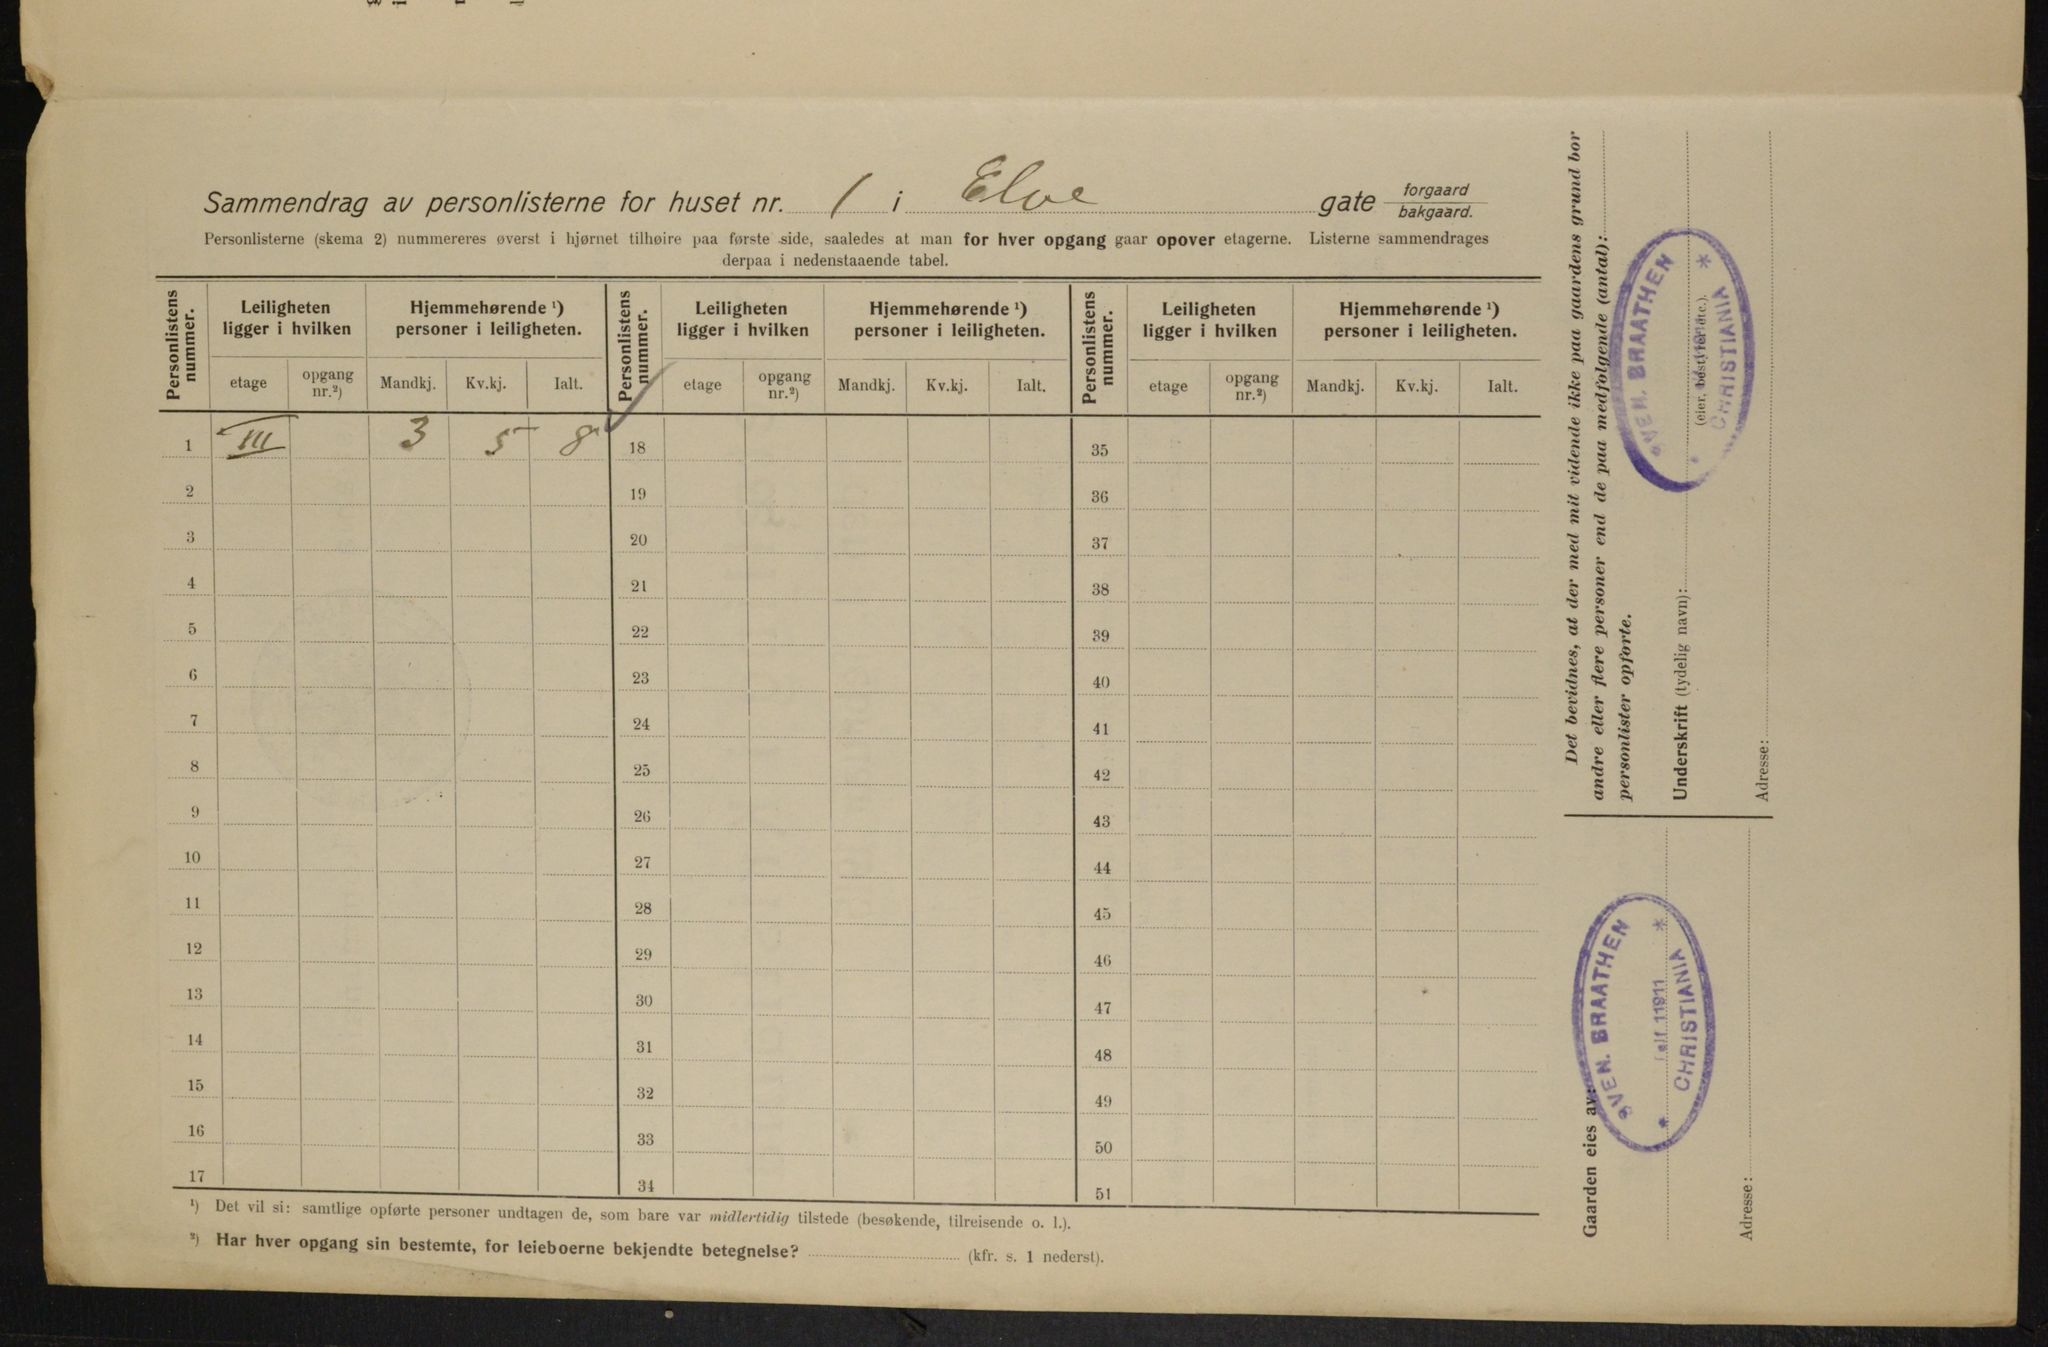 Sammendrag av personlisterne for huset nr. 1 i Elve gate forgaard
bakgaard.
Personlisterne (skema 2) nummereres øverst i hjørnet tilhøire paa første side, saaledes at man for hver opgang gaar opover etagerne. Listerne sammendrages
derpaa i nedenstaaende tabel.
Personlistens nummer. Leiligheten ligger i hvilken Hjemmehørende ¹) personer i leiligheten. Personlistens nummer. Leiligheten ligger i hvilken Hjemmehørende ¹) personer i leiligheten. Personlistens nummer. Leiligheten ligger i hvilken Hjemmehørende ¹) personer i leiligheten.
etage opgang nr.²) Mandkj. Kv.kj. Ialt. etage opgang nr.²) Mandkj. Kv.kj. Ialt. etage opgang nr.²) Mandkj. Kv.kj. Ialt.
1 III 3 5 8 18 35
2 19 36
3 20 37
4 21 38
5 22 39
6 23 40
7 24 41
8 25 42
9 26 43
10 27 44
11 28 45
12 29 46
13 30 47
14 31 48
15 32 49
16 33 50
17 34 51
¹) Det vil si: samtlige opførte personer undtagen de, som bare var midlertidig tilstede (besøkende, tilreisende o. l.).
²) Har hver opgang sin bestemte, for leieboerne bekjendte betegnelse? (kfr. s. 1 nederst).
Det bevidnes, at der med mit vidende ikke paa gaardens grund bor
andre eller flere personer end de paa medfølgende (antal):
personlister opførte.
Underskrift (tydelig navn):
(eier, bestyrer etc.).
Adresse:
SVEN. BRAATHEN
CHRISTIANIA
Gaarden eies av:
SVEN. BRAATHEN
Telf 11911
CHRISTIANIA
Adresse: